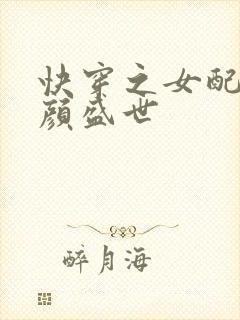 快穿之女配
颜盛世
醉月海